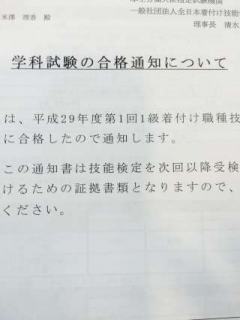 一般社団法人全日本着付け技能
理事長　清水
殿
学科試験の合格通知について
は、平成29年度第1回1級着付け職種技
に合格したので通知します。
この通知書は技能検定を次回以降受検
けるための証拠書類となりますので、
ください。